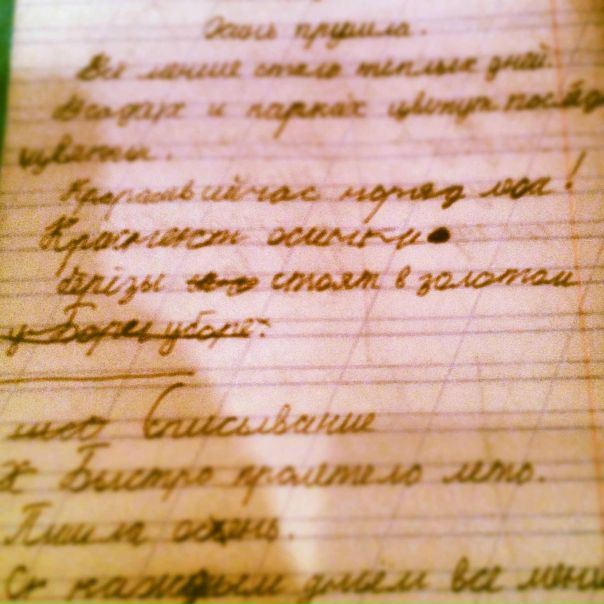 Осень пришла.
Всё менше стало теплых дней.
В садах и парках цветут послед
цветы.
Красив сийчас наряд леса!
Краснеют осинки
Брёзы стоят в золотом
уборе.
Списывание
Быстро пролетело лето.
Пшила осень.
С каждым днём все мень